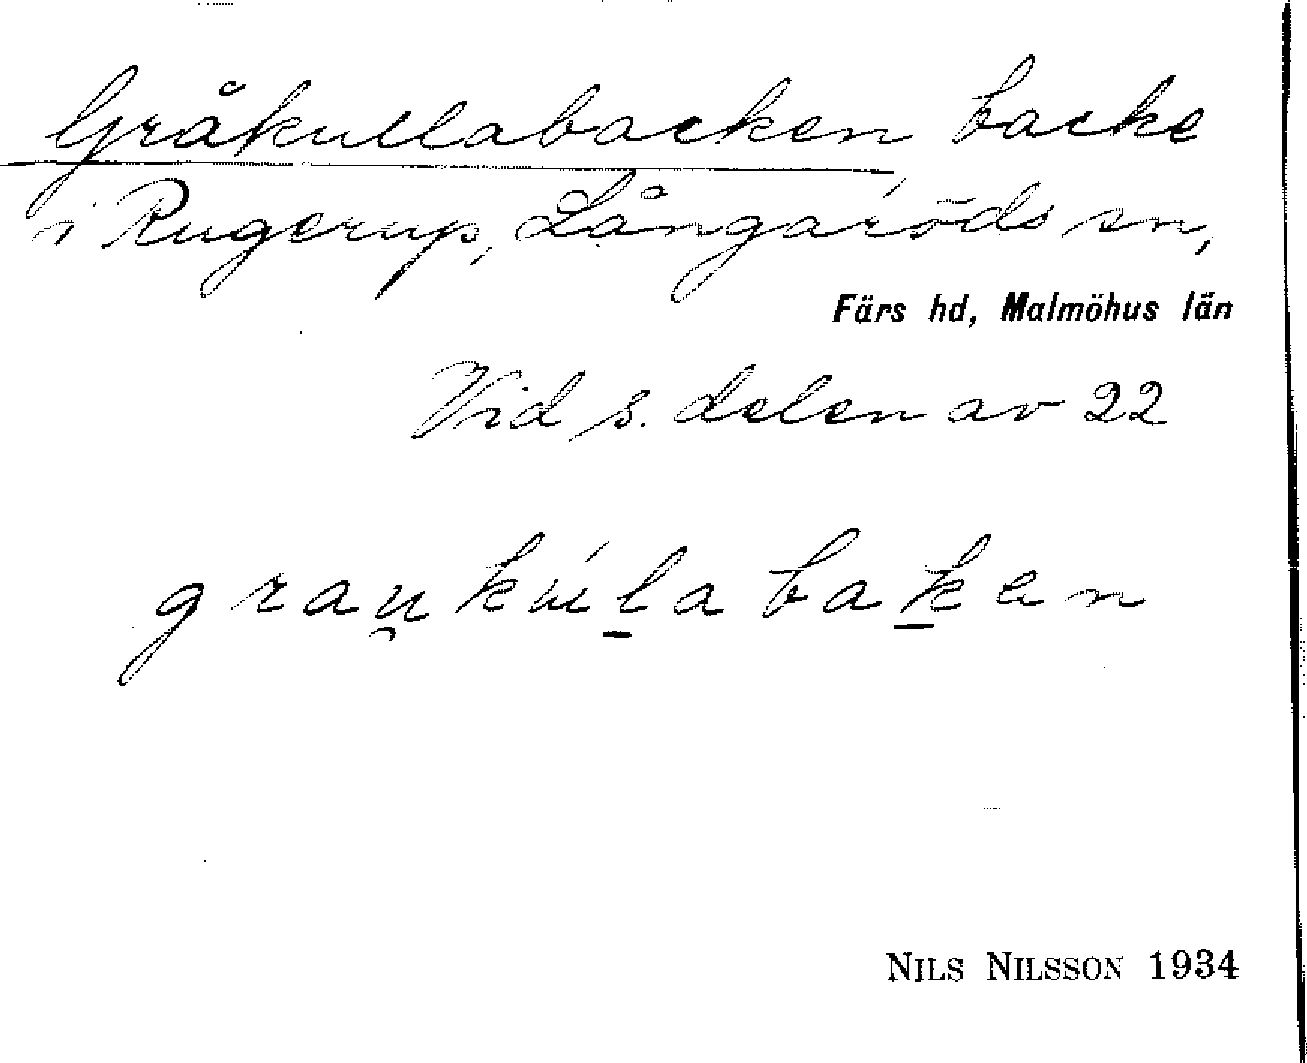 Gråkullabacken, backe
i Rugerup, Långaröds sn,
Färs hd, Malmöhus län
Vid s. delen av 22
grau̯kúl̲abak̲en
NILS NILSSON 1934